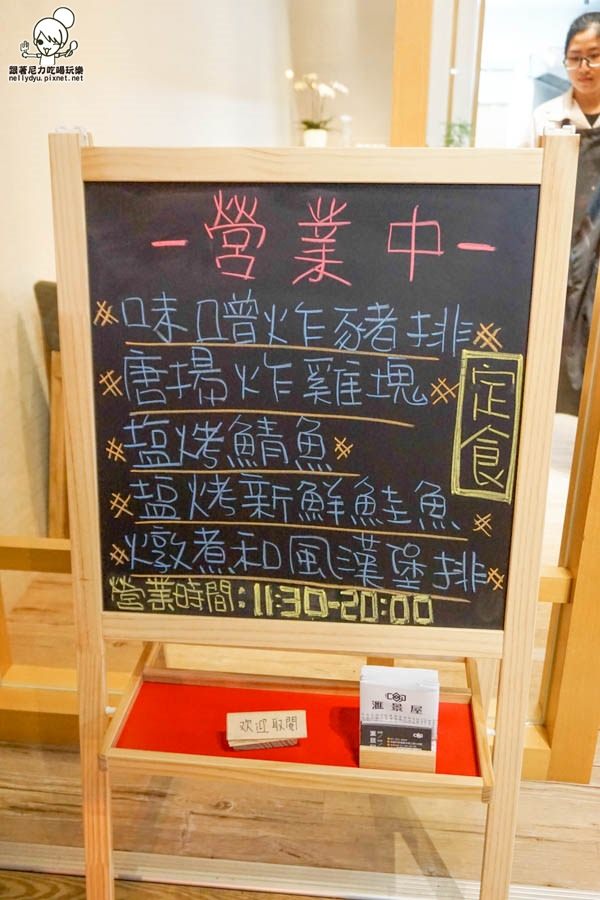 跟著尼力吃喝玩樂
nellydyu.pixnet.net
-營業中-
味噌炸豬排
唐揚炸雞塊
塩烤鯖魚
塩烤新鮮鮭魚
燉煮和風漢堡排
定食
營業時間:11:30-20:00
滙景屋
欢迎取閱